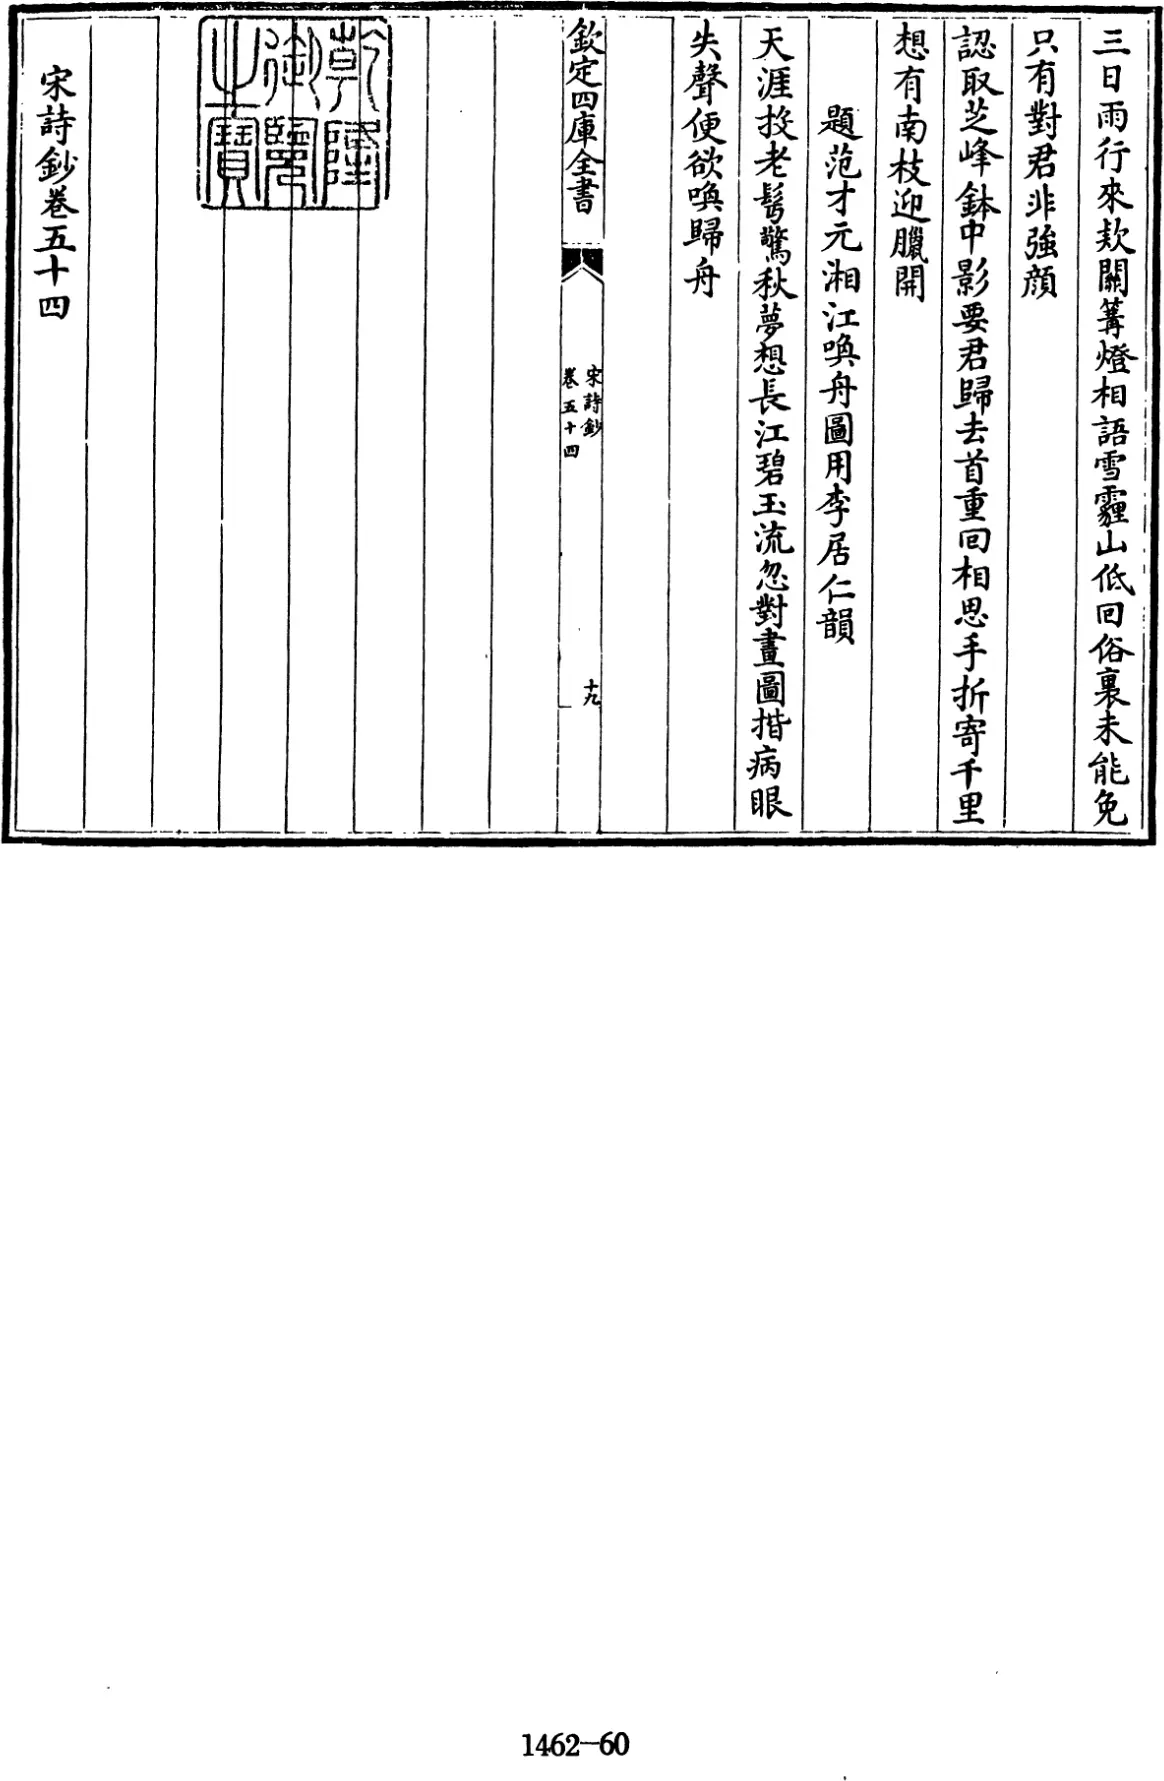 三日雨行來欵關篝燈相語雪霾山低回俗裏未能免
只有對君非強顔
認取芝峰鉢中影要君歸去首重回相思手折寄千里
想有南枝迎臘開
題范才元湘江喚舟圖用李居仁韻
天涯投老鬢驚秋夢想長江碧玉流忽對畫圖揩病眼
失聲便欲喚歸舟
欽定四庫全書
宋詩鈔
卷五十四
十九
乾隆
御覽
之寶
宋詩鈔卷五十四
1462-60